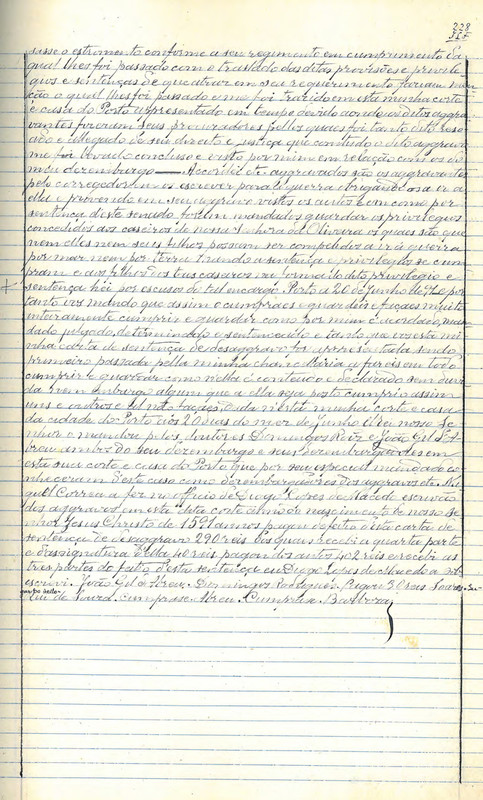 228
sasse o estromento conforme a seu regimento em cumprimento da
qual lhes foi passado com o traslado das ditas provisões e privile
gios e sentenças de que atraz em seu requerimento faziam men
ção o qual lhes foi passado e me foi trazido em esta minha corte
e casa do Porto apresentado em tempo devido aonde os ditos aggra
vantes fizeram seus procuradores pellos quais foi tanto dito rezo
ado e allegado de seu direito e justiça que o mesmo dito aggravo
me foi levado concluso e visto por mim em relação com os do
meu dezembargo — Acordei etc aggravados são os aggravantes
pelo corregedor em os escrever para a guerra obrigando-os a ir a
ella e provendo em seu aggravo vistos os autos e como por
sentença deste senado foram mandados guardar os privilegios
concedidos aos caseiros de nossa Senhora da Oliveira os quais são que
nem elles nem seus filhos possam ser compellidos a ir á guerra
por mar nem por terra mando a sentença e privilegios se cum
pram e aos filhos dos taes caseiros na forma do dito privilegio e
sentença hei por escusos do tal encargo. Porto a 20 de junho de 91 e por
tanto vos mando que assim o cumpraes e guardeis e façaes muito
inteiramente cumprir e guardar como por mim é acordado, man
dado julgado, determinado e sentenceado e tanto que vos esta mi
nha carta de sentença de desaggravo for aprezentada sendo
primeiro passada pella minha chancellaria a fareis em todo
cumprir e guardar como nella é conteudo e declarado sem duvi
da nem embargo algum que a ella seja posto cumprio assim
uns e outros e al não façaes. Dada n'esta minha corte e casa
da cidade do Porto aos 20 dias do mez de junho. El-rei nosso Se
nhor o mandou pelos doutores Domingos Roiz e João Gil d'A
breu ambos do seu dezembargo e seus dezembargadores em
esta sua corte e casa do Porto que por seu especial mandado co
nheceram d'este caso como dezembargadores dos aggravos etc. Mi
guel Correia a fez no officio de Diogo Lopes de Macedo escrivão
dos aggravos em esta dita corte anno do nascimento de nosso Se
nhor Jesus Christo de 1591 annos pagou de feitio desta carta de
sentença de desaggravo 290 reis dos quais recebi a quarta parte
e d'assignatura d'ella 40 reis pagou dos autos 402 reis e recebi as
tres partes do feitio d'esta sentença eu Diogo Lopes de Macedo a sob
escrevi. João Gil d'Abreu. Domingos Rodrigues. Pagou 30 reis
de Souza. Cumpra-se Abreu. Cumpra-se Barbosa